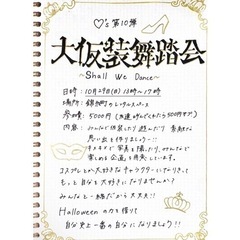 ♡'s 第10弾
大仮装舞踏会
～Shall We Dance～
日時：10月29日(日)13時～17時
場所：錦糸町のレンタルスペース
参加費：5000円(お友達呼んでくれたら500円オフ)
内容：みんなで仮装したり遊んだり 素敵な
思い出を作りましょ～!!
キメキメで写真を撮ったり、みんなで
楽しめる企画を用意しています。
コスプレとか大好きなキャラクターになりきって
もっと自分を大好きになりませんか？
みんなと一緒だから大丈夫!!
Halloweenの力を借りて
自分史上一番の自分になりましょう!!